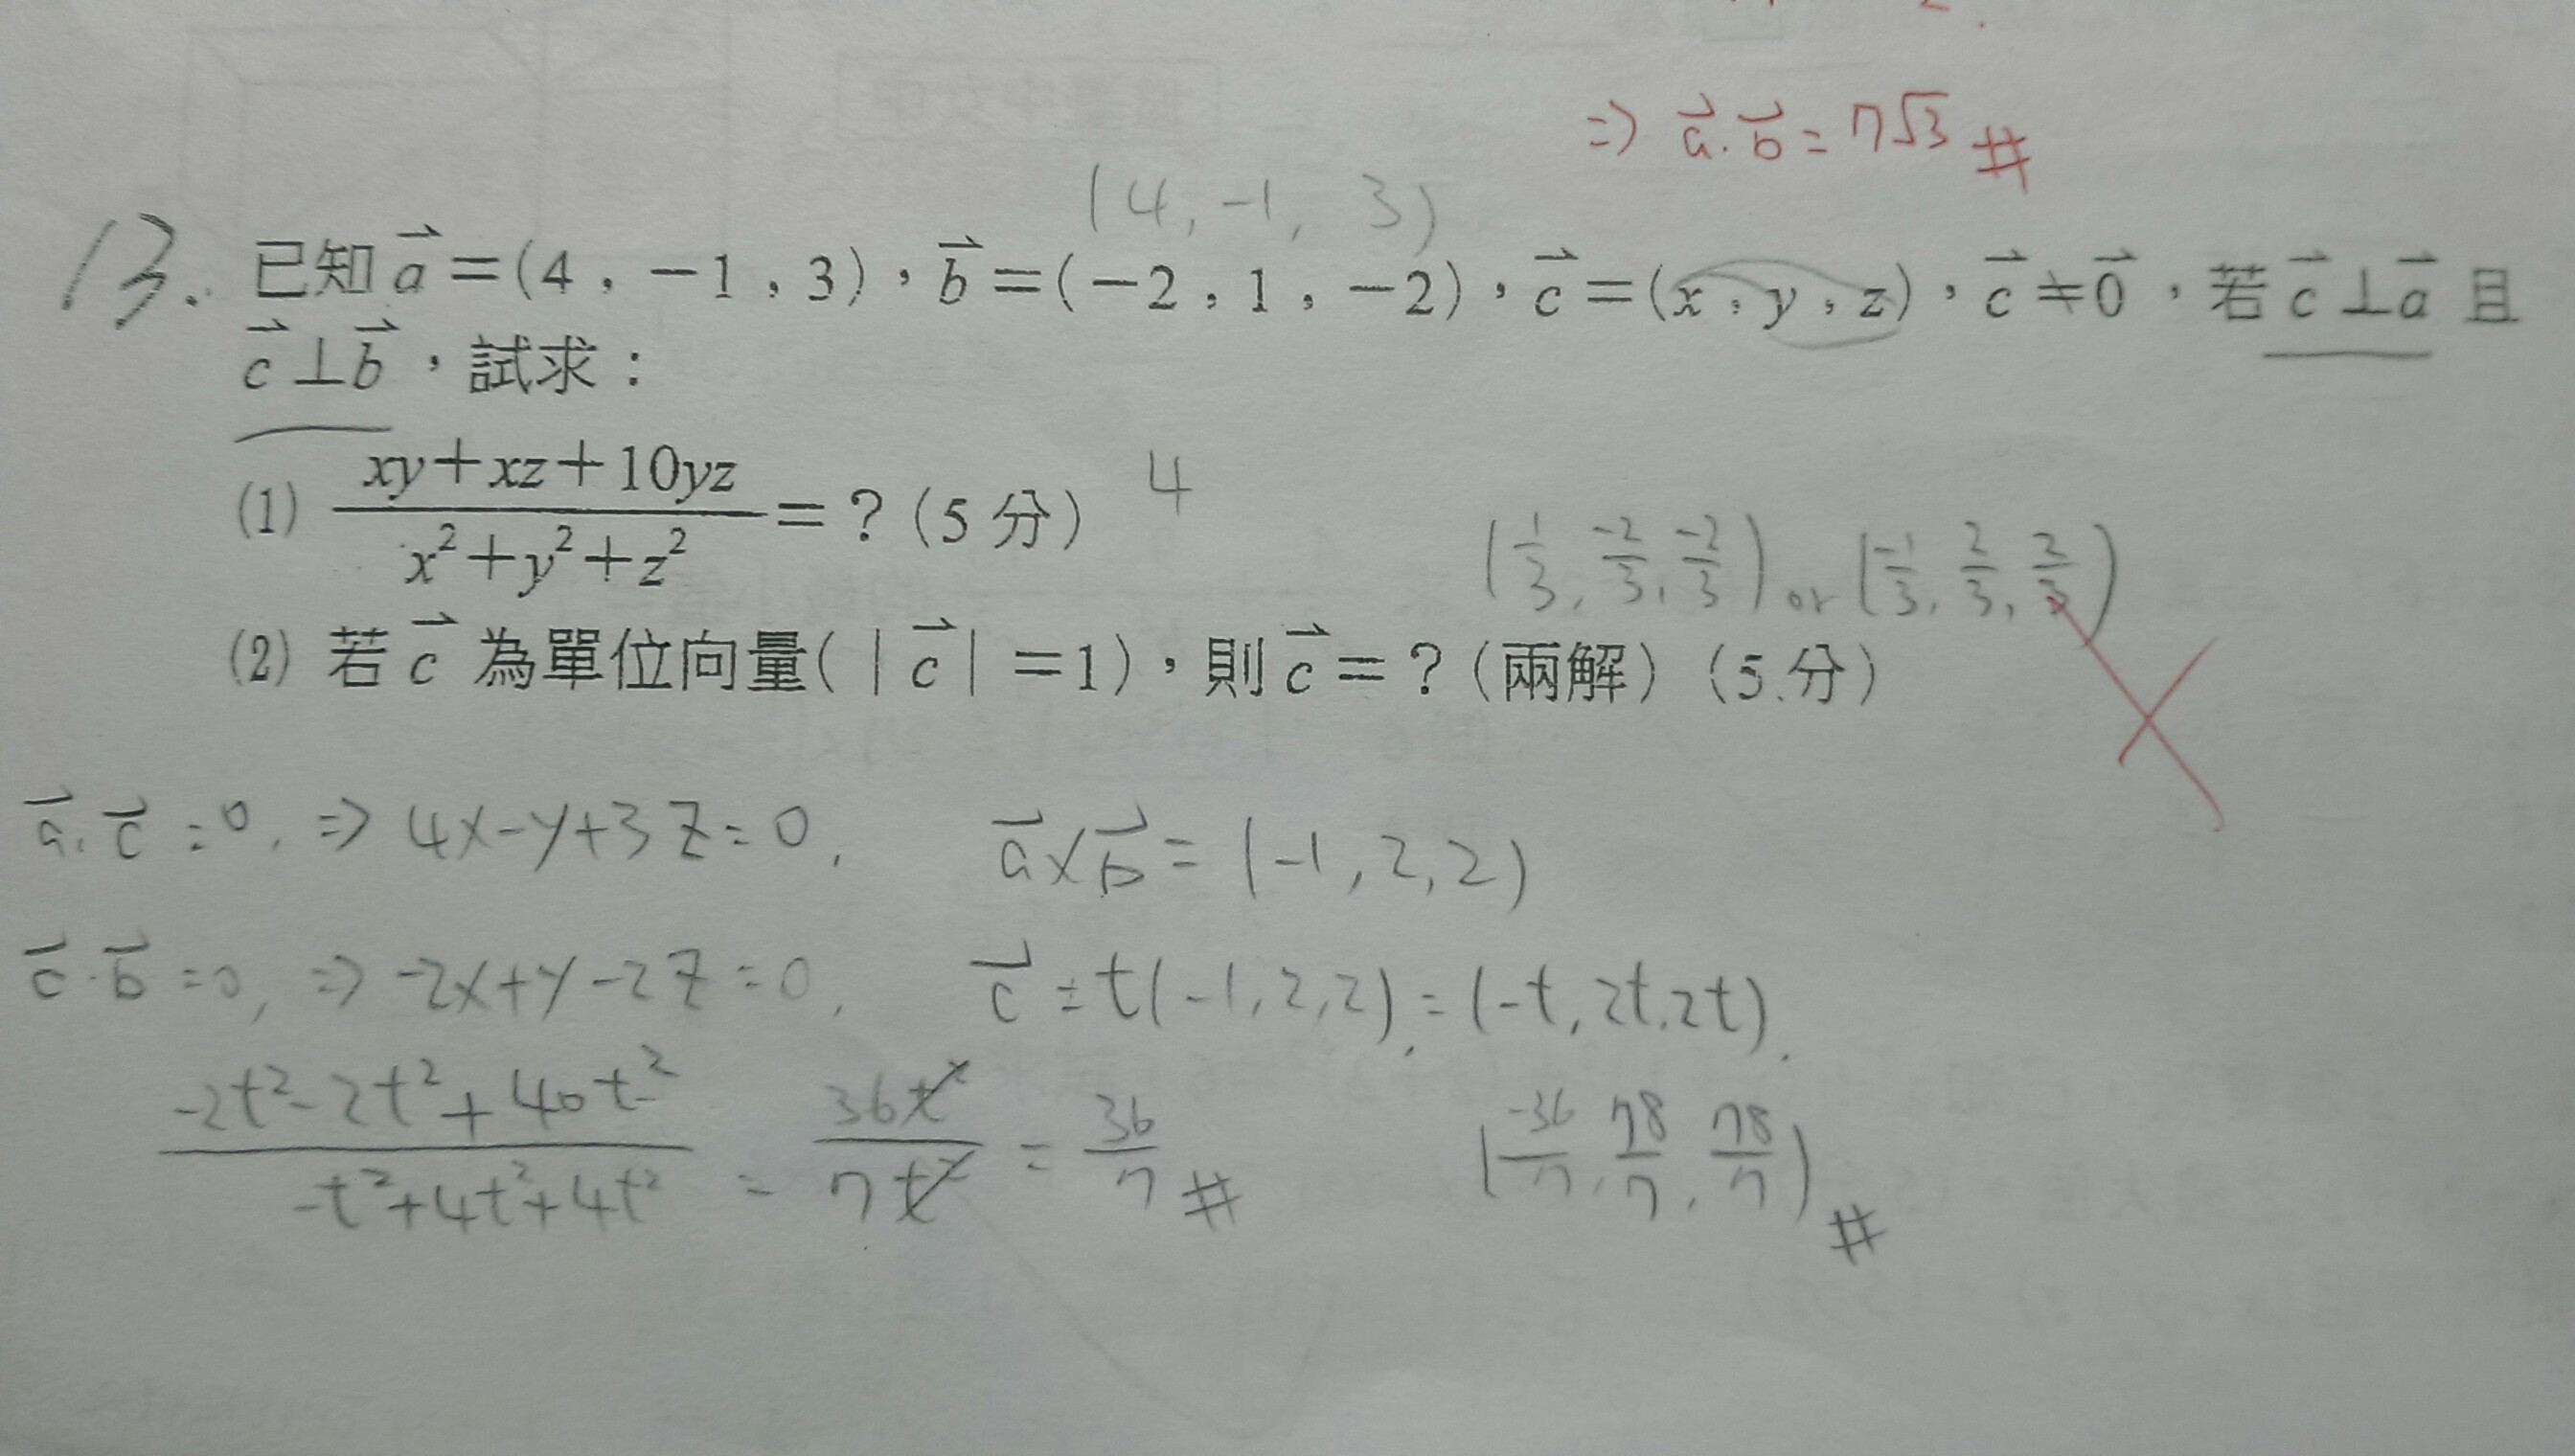 ⇒ a⃗·b⃗ = 7√3 #
(4, -1, 3)
13. 已知 a⃗=(4,-1,3),b⃗=(-2,1,-2),c⃗=(x,y,z),c⃗≠0⃗,若 c⃗⊥a⃗ 且
c⃗⊥b⃗,試求:
(1) (xy+xz+10yz)/(x²+y²+z²)=?(5分) 4
(1/3, -2/3, -2/3) or (-1/3, 2/3, 2/3)
(2) 若 c⃗ 為單位向量(|c⃗|=1),則 c⃗=?(兩解)(5分)
a⃗·c⃗=0, ⇒ 4x-y+3z=0, a⃗×b⃗=(-1,2,2)
c⃗·b⃗=0, ⇒ -2x+y-2z=0, c⃗=t(-1,2,2),=(-t,2t,2t).
(-2t²-2t²+40t²)/(-t²+4t²+4t²) = 36t²/7t² = 36/7 # (-36/7, 78/7, 78/7) #